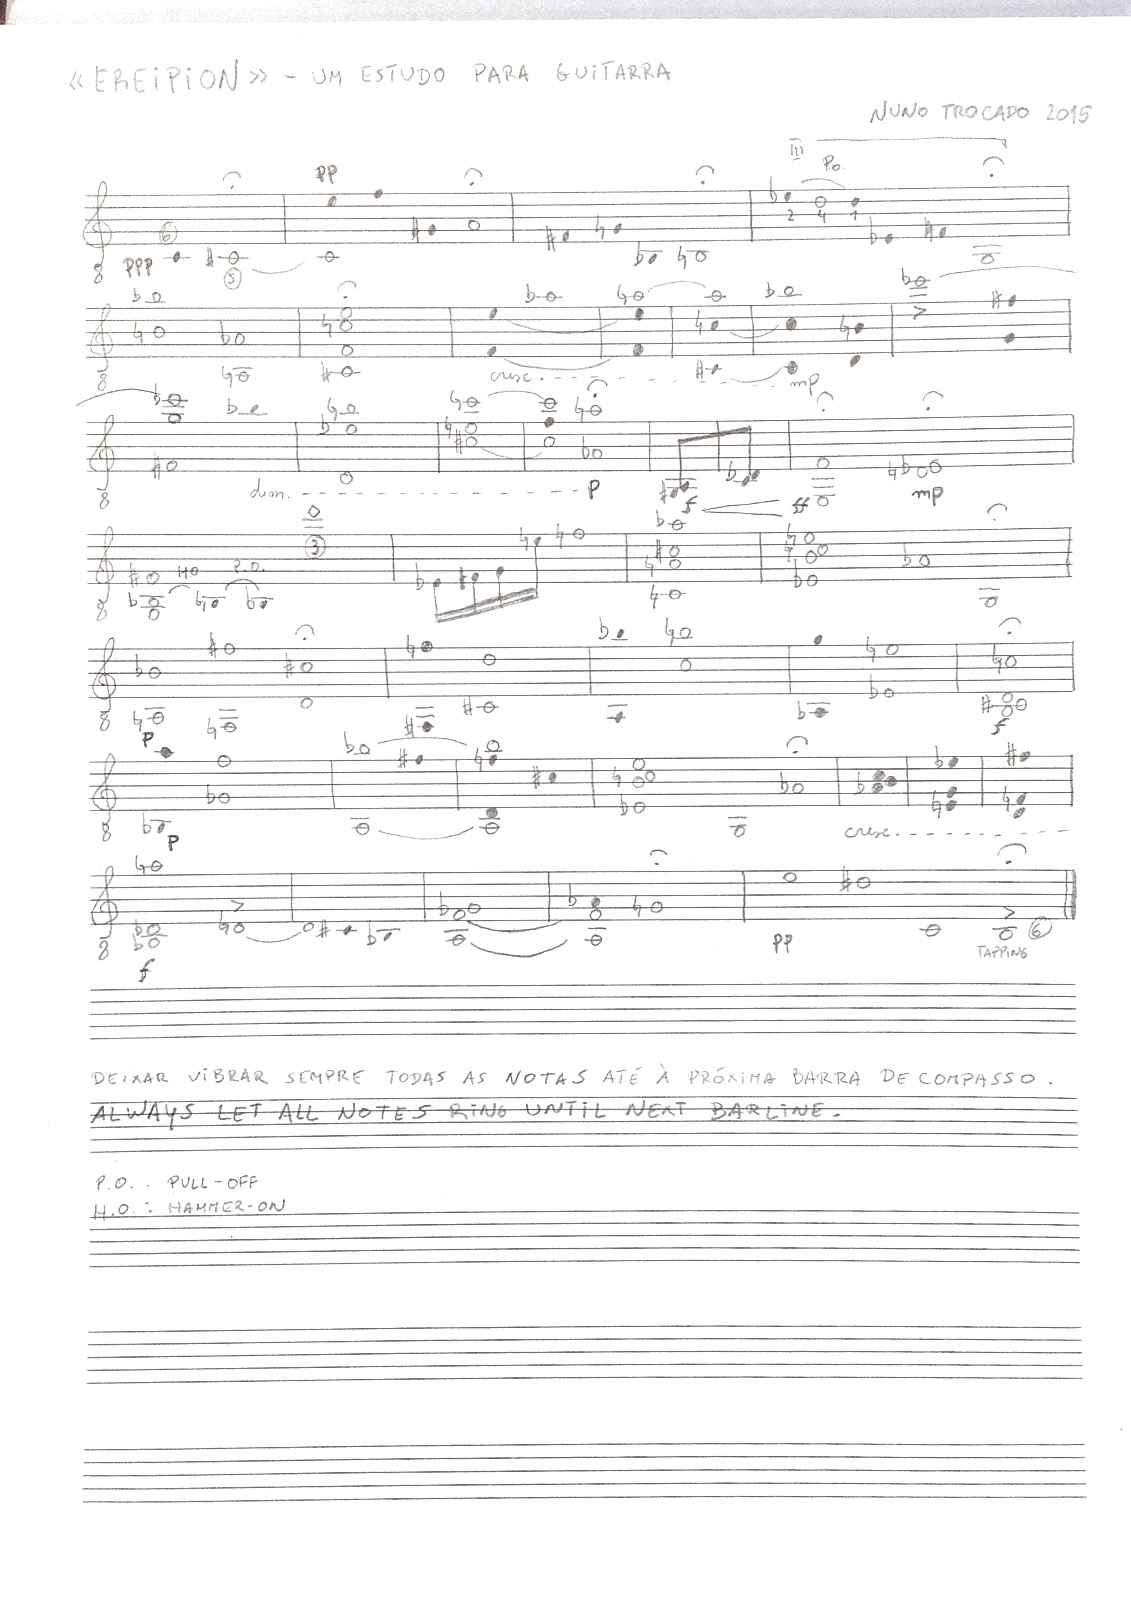 «EREIPION» - UM ESTUDO PARA GUITARRA
NUNO TROCADO 2015
III
pp P.O.
6 2 4 1
8 ppp 5
8 cresc. mp
8 dim. p f ff mp
3
HO P.O.
8
8 p f
8 p cresc.
8 f pp TAPPING 6
DEIXAR VIBRAR SEMPRE TODAS AS NOTAS ATÉ À PRÓXIMA BARRA DE COMPASSO.
ALWAYS LET ALL NOTES RING UNTIL NEXT BARLINE.
P.O. : PULL-OFF
H.O. : HAMMER-ON